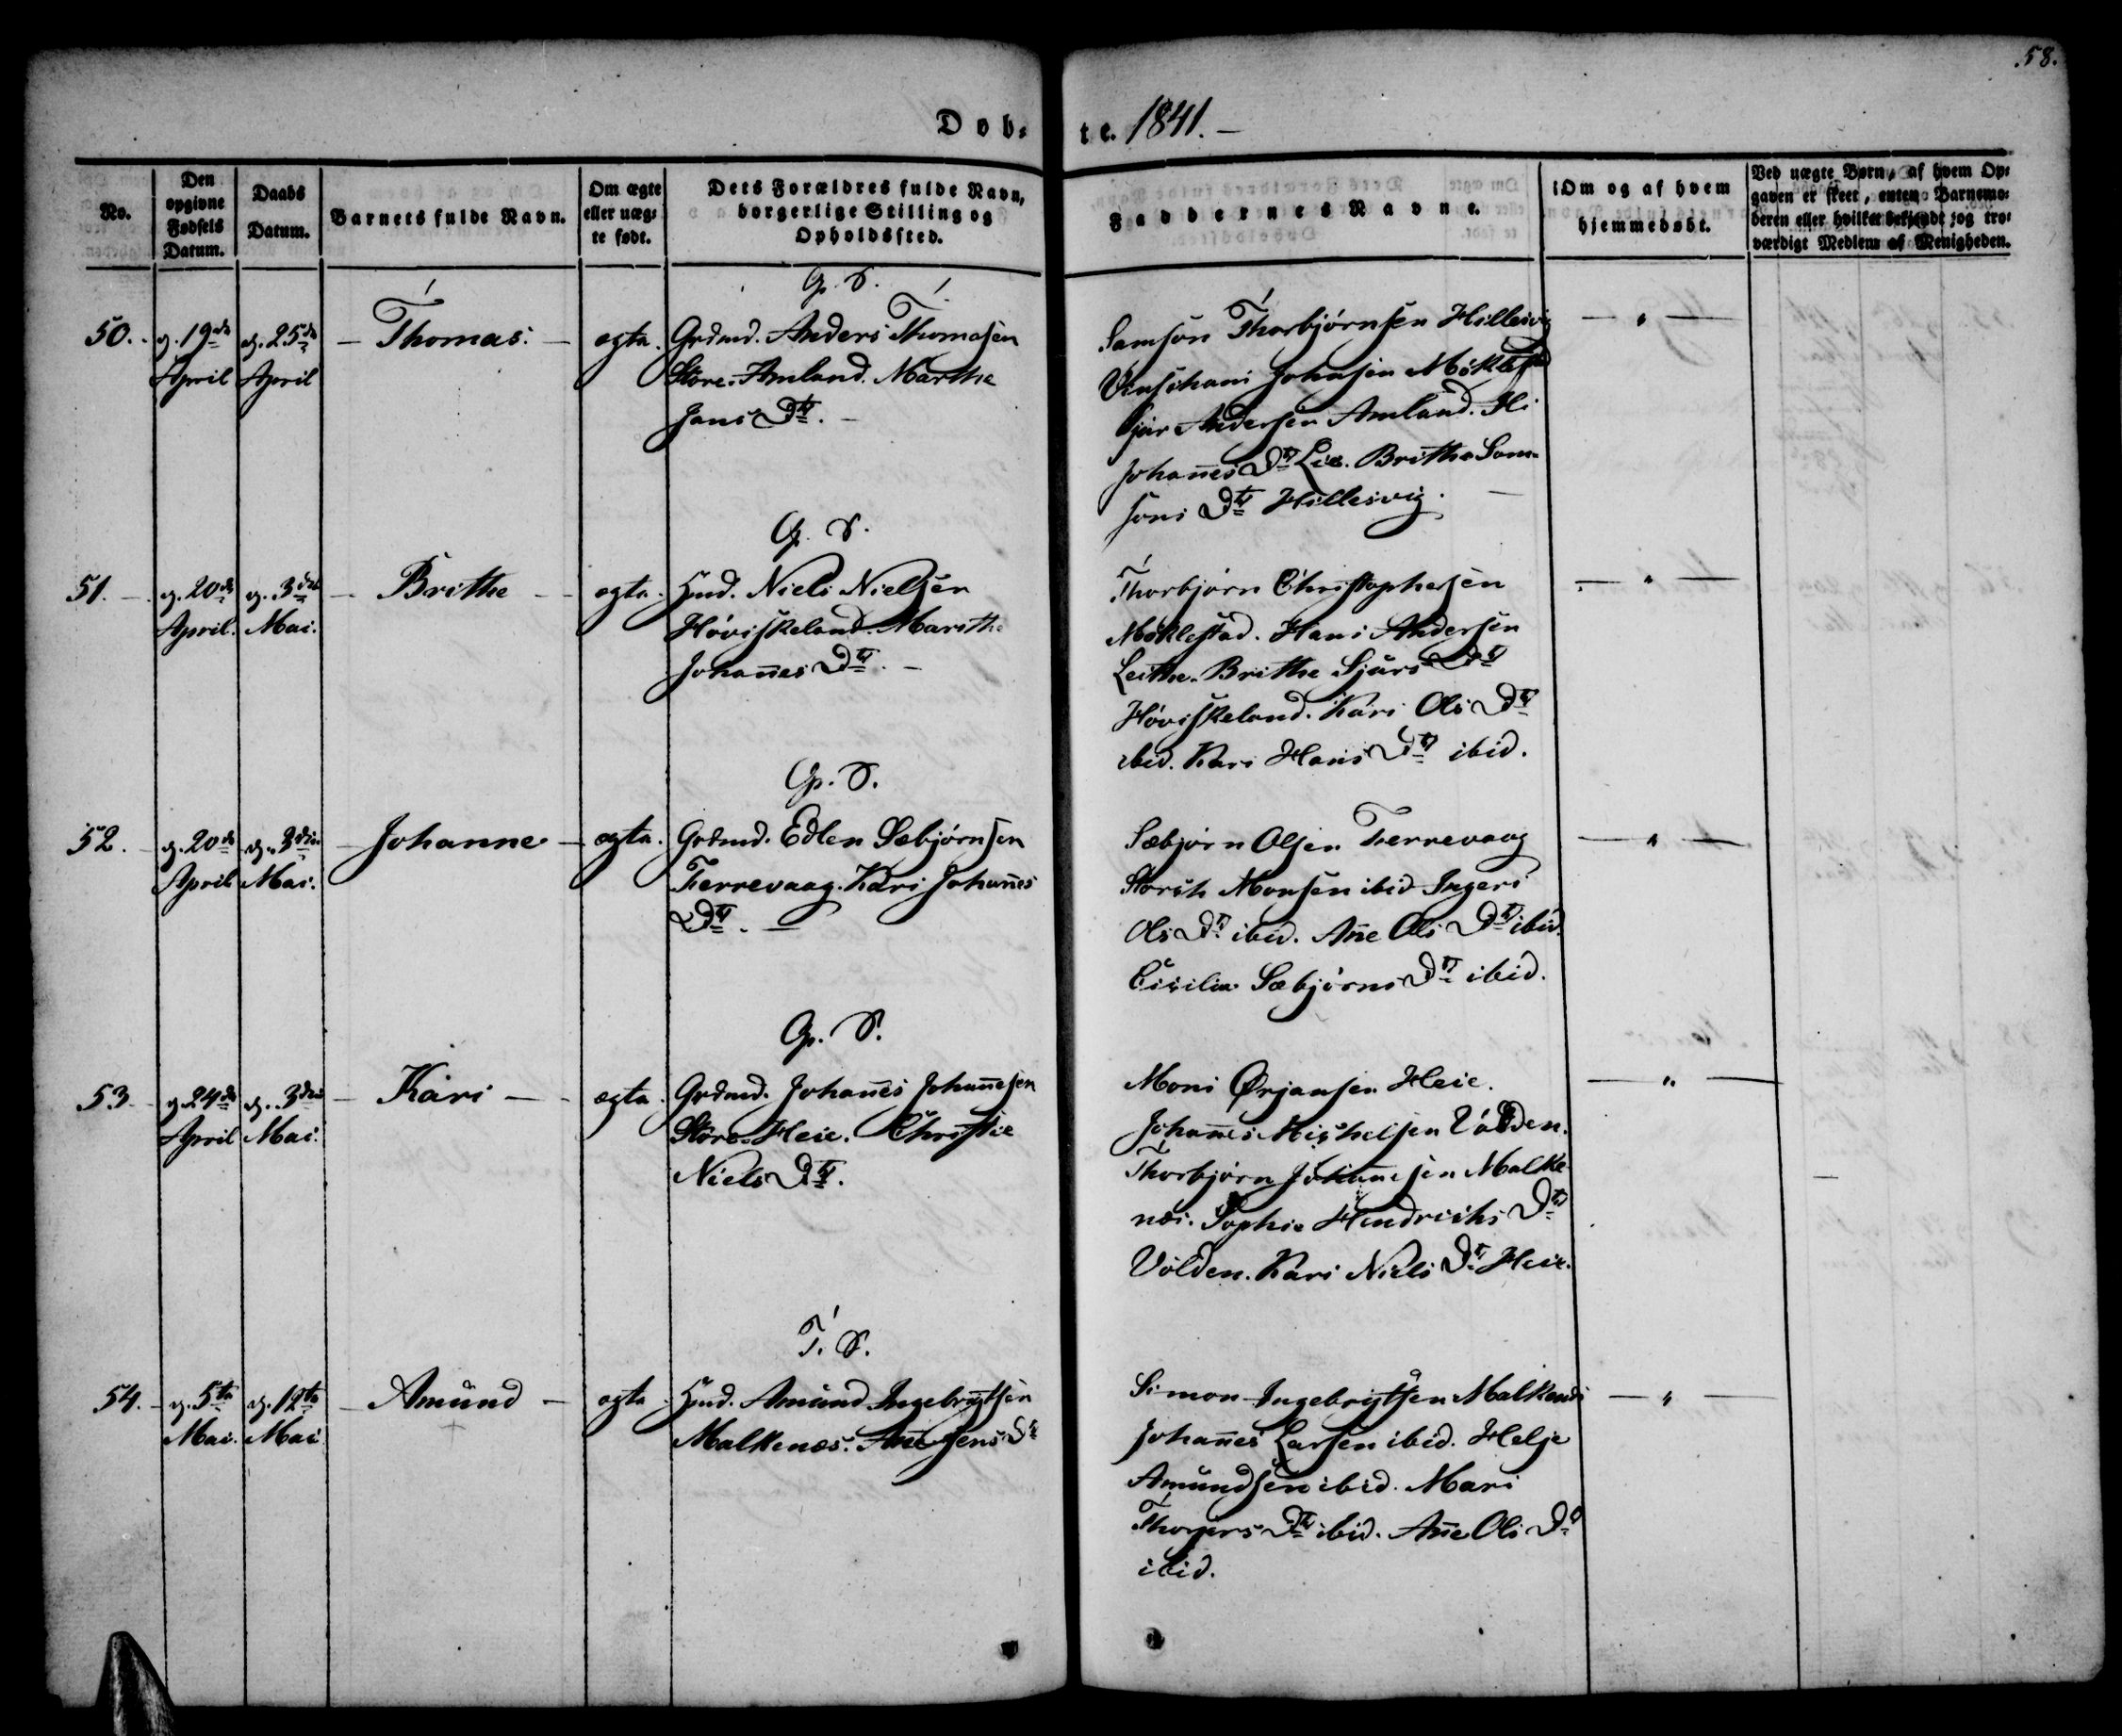 58.
Døb- te. 1841. -
No.
Den opgivne Fødsels Datum.
Daabs Datum.
Barnets fulde Navn.
Om ægte eller uæg- te født.
Dets Forældres fulde Navn, borgerlige Stilling og Opholdssted.
Faddernes Navne.
Om og af hvem hjemmedøbt.
Ved uægte Børn, af hvem Op- gaven er skeet, enten Barnemo- deren eller hvilket bekjendt og tro- værdigt Medlem af Menigheden.
G. S.
50. d. 19de d. 25de - Thomas. - ægte. Grdmd. Anders Thomasen
April April Store-Amland. Marthe
Jans Dtr. -
Samson Thorbjørnsen Hillesvig - " -
Johnsen Møklestad
Sjur Andersen Amland.
Johannes Dtr Lie. Brithe Sam-
sons Dtr Hillesvig. -
G. S.
51. - d. 20de d. 3die - Brithe - ægte. Hmd. Niels Nielsen
April. Mai. Høviskeland. Marithe
Johannes Dtr. -
Thorbjørn Christophersen - " -
Møklestad. Hans Andersen
Leithe. Brithe Sjurs Dtr
Høviskeland. Kari Ols Dtr
ibid. Kari Hans Dtr ibid.
G. S.
52. - d. 20de d. 3die - Johanne - ægte. Grdmd. Edlen Sæbjørnsen
April Mai. Færrevaag. Kari Johannes
Dtr. -
Sæbjørn Olsen Færrevaag - " -
Monsen ibid Ingeri
Ols Dtr ibid. Ane Ols Dtr ibid.
Cicilia Sæbjørns Dtr ibid.
G. S.
53 - d. 24de d. 3die - Kari - ægte. Grdmd. Johannes Johannesen
April Mai. Store-Heie. Christie
Niels Dtr.
Mons Ørjansen Heie. - " -
Johannes Michelsen Volden.
Thorbjørn Johannesen Malke-
næs. Sophie Hendrichs Dtr
Volden. Kari Niels Dtr Heie.
T. S.
54. - d. 5te d. 12te - Amund - ægte. Hmd. Amund Ingebrigtsen
Mai. Mai Malkenæs. Ane Jens Dtr
Simon Ingebrigtsen Malkenæs - " -
Johannes Larsen ibid. Helje
Amundsen ibid. Mari
Thorgers Dtr ibid. Ane Ols Dtr
ibid.